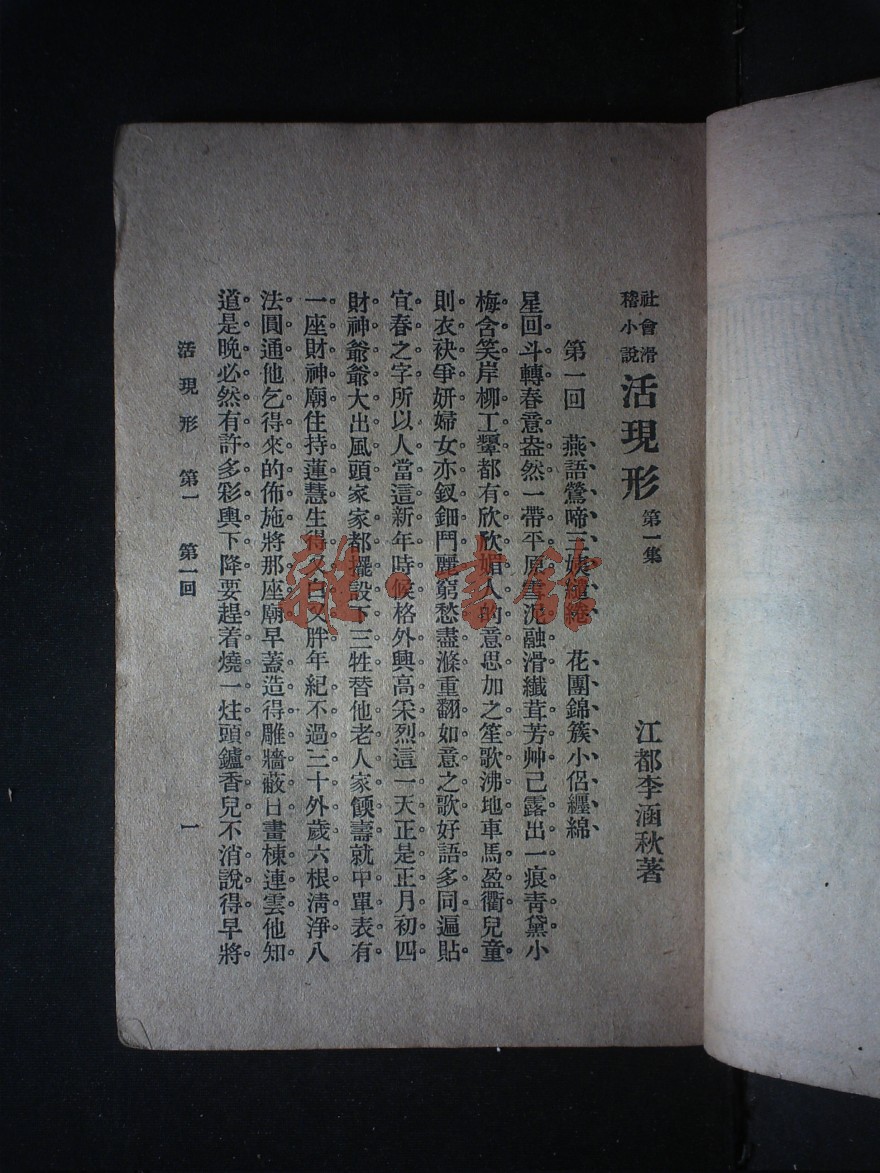 社會滑稽小說 活現形 第一集
江都李涵秋著
第一回 燕語鶯啼三姨繾綣 花團錦簇小侶纏綿
星回斗轉春意盎然一帶平原雪泥融滑纖茸芳艸已露出一痕青黛小
梅含笑岸柳工顰都有欣欣媚人的意思加之笙歌沸地車馬盈衢兒童
則衣袂爭妍婦女亦釵鈿鬥麗窮愁盡滌重翻如意之歌好語多同遍貼
宜春之字所以人當這新年時候格外興高采烈這一天正是正月初四
財神爺爺大出風頭家家都擺設下三牲替他老人家餪壽就中單表有
一座財神廟住持蓮慧生得又白又胖年紀不過三十外歲六根淸淨八
法圓通他乞得來的佈施將那座廟早蓋造得雕牆蔽日畫棟連雲他知
道是晚必然有許多彩輿下降要趕着燒一炷頭鑪香兒不消說得早將
活現形 第一 第一回 一
雜·書館